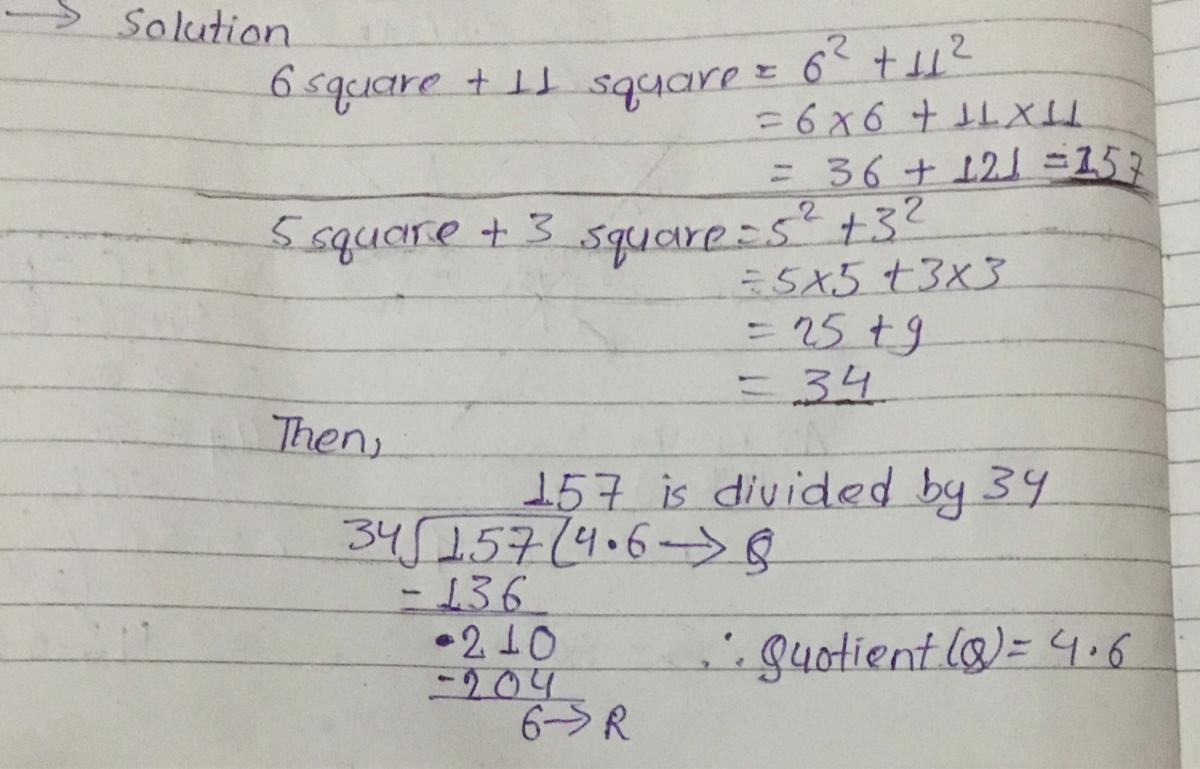 → Solution
6 square + 11 square = 6² + 11²
= 6 × 6 + 11 × 11
= 36 + 121 = 157
5 square + 3 square = 5² + 3²
= 5 × 5 + 3 × 3
= 25 + 9
= 34
Then,
157 is divided by 34
34 ) 157 ( 4.6 → Q
- 136
210
- 204
6 → R
∴ Quotient (Q) = 4.6